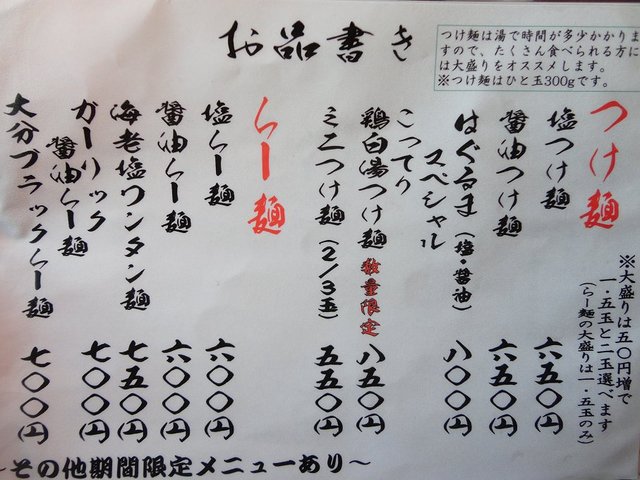 お品書き
つけ麺は湯で時間が多少かかりま
すので、たくさん食べられる方に
は大盛りをオススメします。
※つけ麺はひと玉300gです。
つけ麺
※大盛りは五〇円増で
一・五玉と二玉選べます
(らー麺の大盛りは一・五玉のみ)
塩つけ麺 六五〇円
醤油つけ麺 六五〇円
はぐるま(塩・醤油)
スペシャル 八〇〇円
こってり
鶏白湯つけ麺 数量限定 八五〇円
ミニつけ麺(2/3玉) 五五〇円
らー麺
塩らー麺 六〇〇円
醤油らー麺 六〇〇円
海老塩ワンタン麺 七五〇円
ガーリック
醤油らー麺 七〇〇円
大分ブラックらー麺 七〇〇円
~その他期間限定メニューあり~